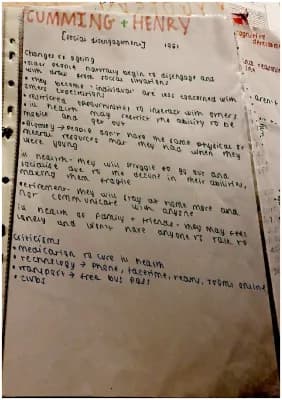 CUMMING + HENRY
[social disengagement] 1961
Changes to ageing
• older people naturally begin to disengage and
with draw from social situations
• they become individual - are less concerned with
others expectations
• restricted opportunities to interact with others
ill health - may restrict the ability to be
mobile and get out
→ people don't have the same physical or
mental resources that they had when they
were young
ill health - they will struggle to go out and
socialise due to the decline in their abilities,
making them fragile
retirement - they will stay at home more and
not communicate with anyone
ill health of family + friends - they may feel
lonely and won't have anyone to talk to
Criticisms
• medication to cure ill health
• technology → phone, facetime, teams, zooms online
• transport → free bus pass
• clubs
cognitive